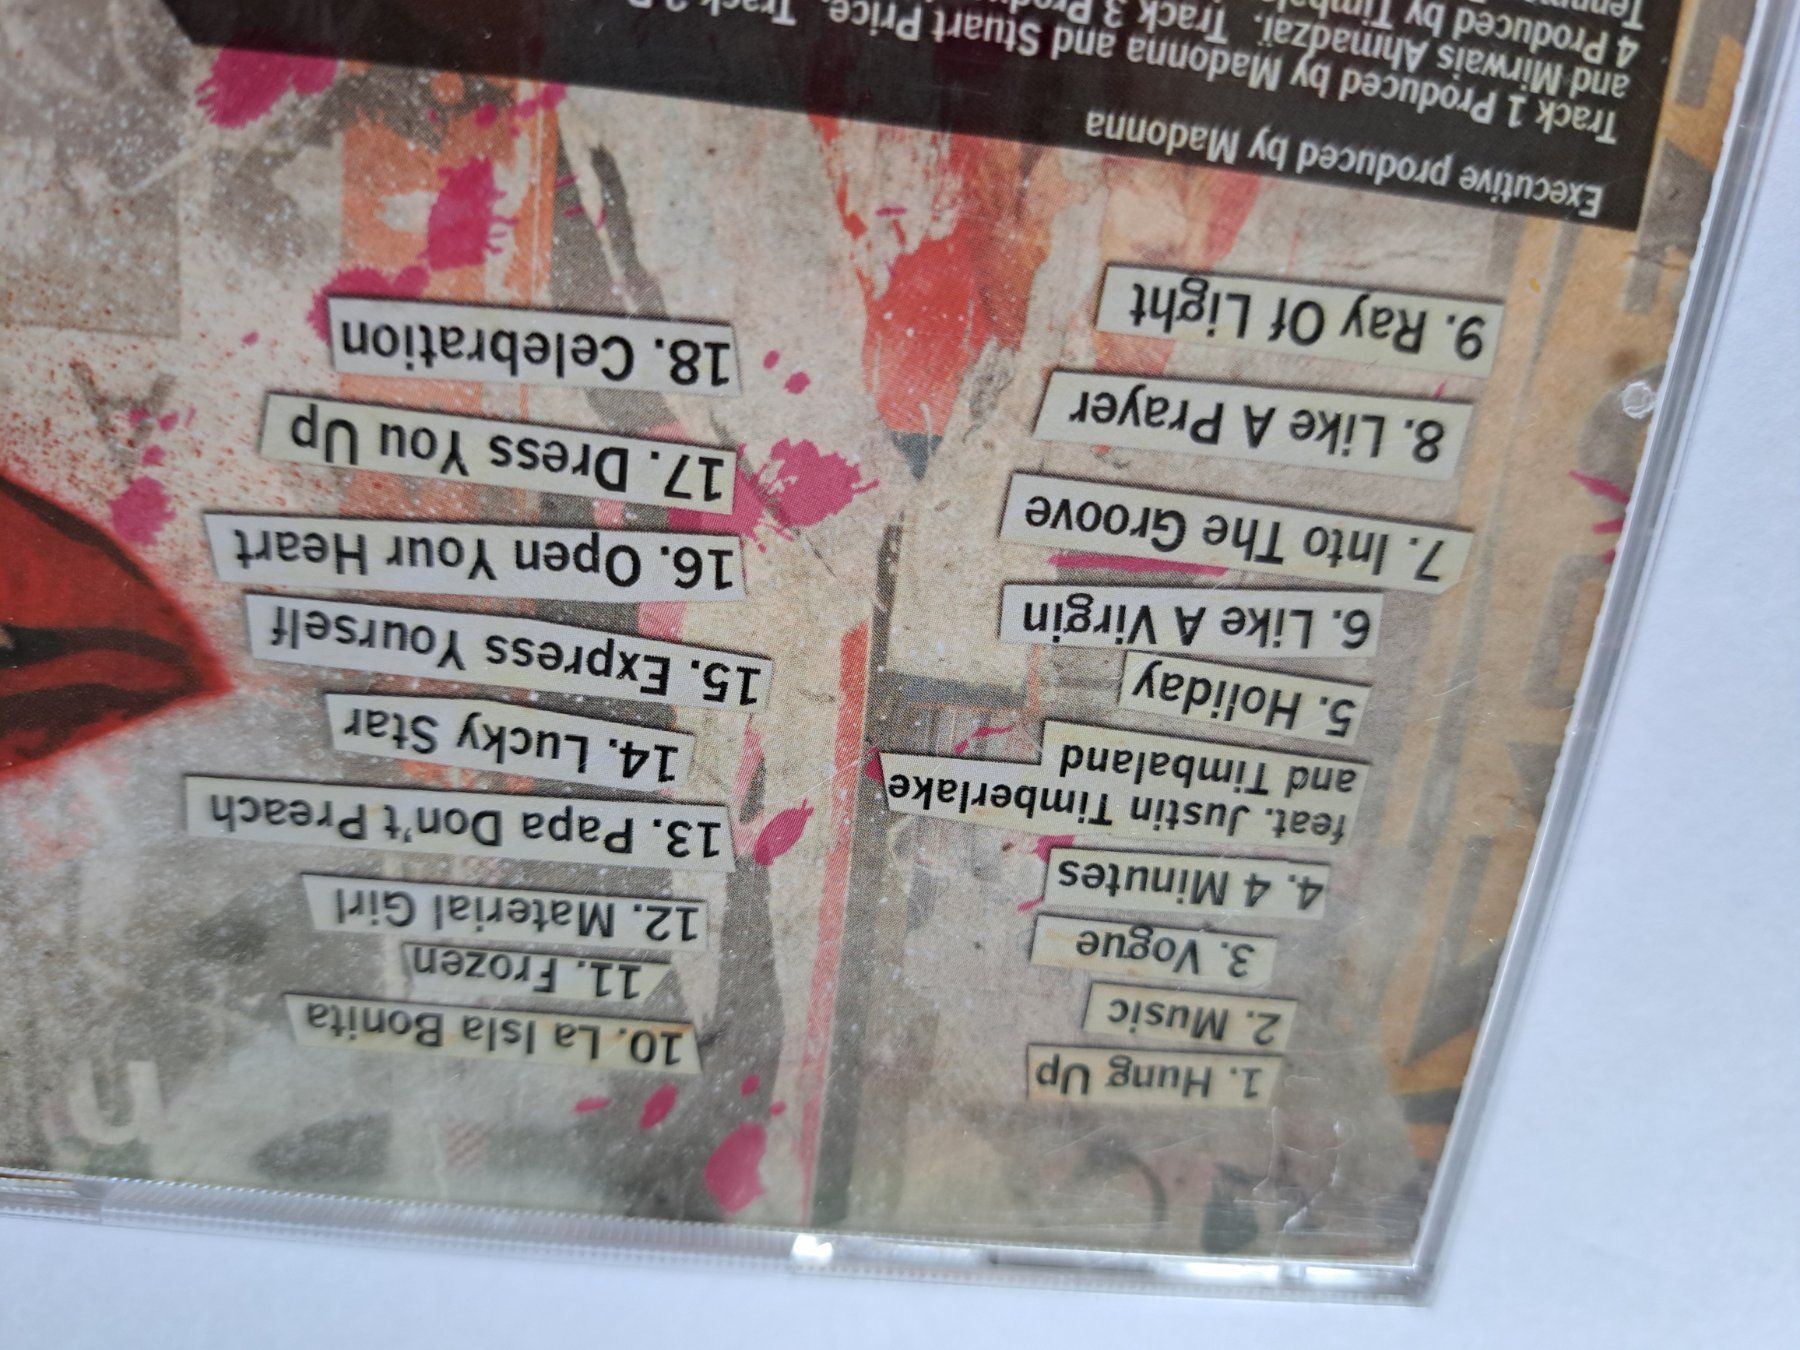 1. Hung Up
2. Music
3. Vogue
4. 4 Minutes
feat. Justin Timberlake
and Timbaland
5. Holiday
6. Like A Virgin
7. Into The Groove
8. Like A Prayer
9. Ray Of Light
10. La Isla Bonita
11. Frozen
12. Material Girl
13. Papa Don't Preach
14. Lucky Star
15. Express Yourself
16. Open Your Heart
17. Dress You Up
18. Celebration
Executive produced by Madonna
Track 1 Produced by Madonna and Stuart Price. Track 2
and Mirwais Ahmadzaï. Track 3
4 Produced by